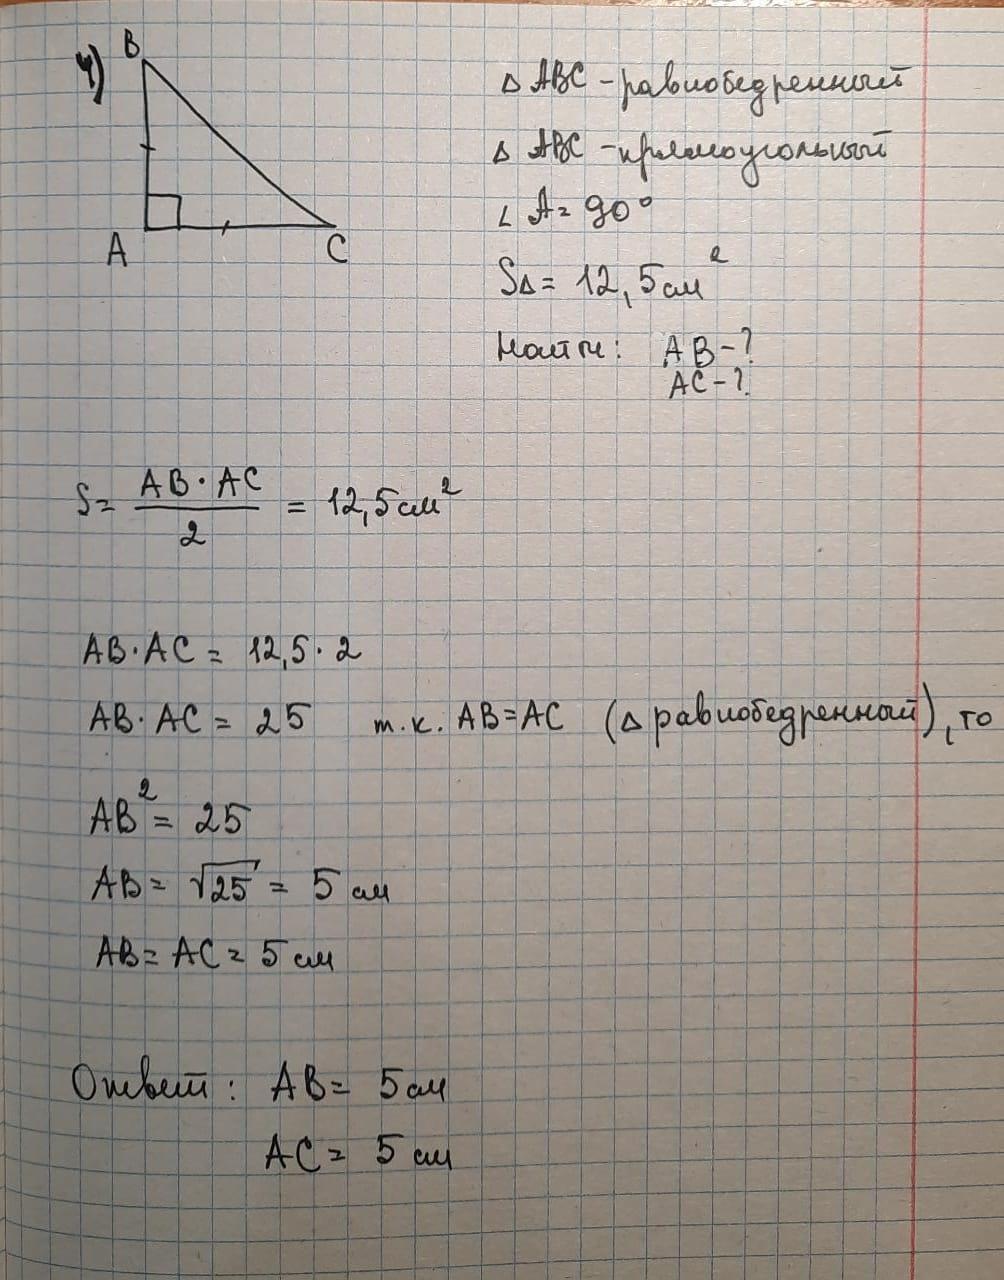 4)
B
A
C
Δ ABC - равнобедренный
Δ ABC - прямоугольный
∠ A = 90°
SΔ = 12,5 см²
Найти: AB - ?
AC - ?
S = AB · AC / 2 = 12,5 см²
AB · AC = 12,5 · 2
AB · AC = 25 т.к. AB = AC (Δ равнобедренный), то
AB² = 25
AB = √25 = 5 см
AB = AC = 5 см
Ответ: AB = 5 см
AC = 5 см